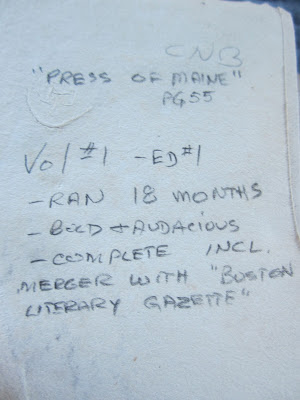 CNB
"PRESS OF MAINE"
PG 55
Vol #1 - ED #1
- RAN 18 MONTHS
- BOLD + AUDACIOUS
- COMPLETE INCL.
MERGER WITH "BOSTON
LITERARY GAZETTE"